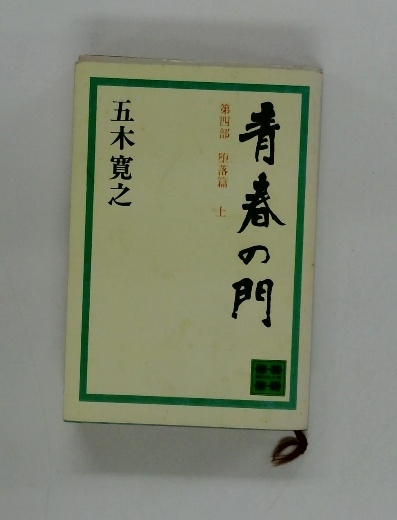 青春の門
第四部 堕落篇 上
五木寛之